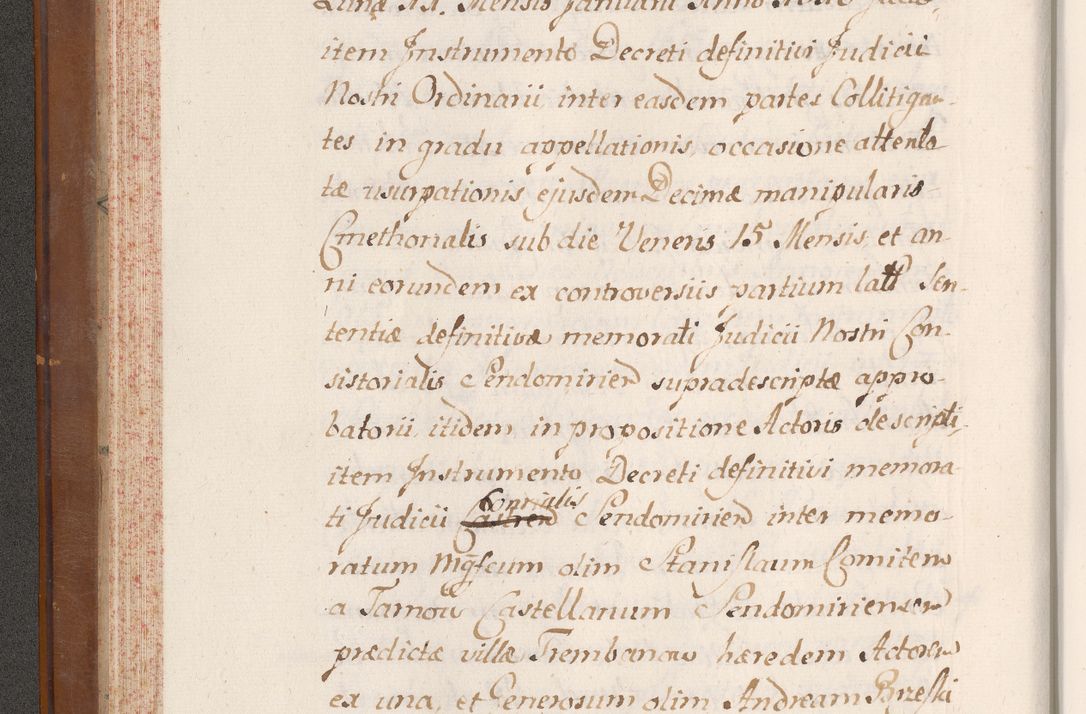 Lunæ 11. Mensis Januarii Anno
item Instrumento Decreti definitivi Judicii
Nostri Ordinarii, inter easdem partes Collitigan-
tes in gradu appellationis, occasione attenta
tæ usurpationis ejusdem Decimæ manipularis
Cmethonalis sub die Veneris 15 Mensis, et an-
ni eorundem ex controversiis partium latt Sen-
tentiæ definitivæ memorati Judicii Nostri Con-
sistorialis Sendomirien supradescriptæ appro-
batorii, itidem in propositione Actoris descripti,
item Instrumento Decreti definitivi memora-
ti Judicii Castren Consialis Sendomirien inter memo-
ratum Mgfcum olim Stanislaum Comitem
a Tarnow Castellanum Sendomiriensem
prædictæ villæ Trembanow hæredem Actorem
ex una, et Generosum olim Andream Brzeski